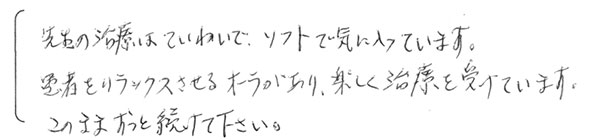 先生の治療はていねいで、ソフトで気に入っています。
患者をリラックスさせるオーラがあり、楽しく治療を受けています。
このままずっと続けて下さい。